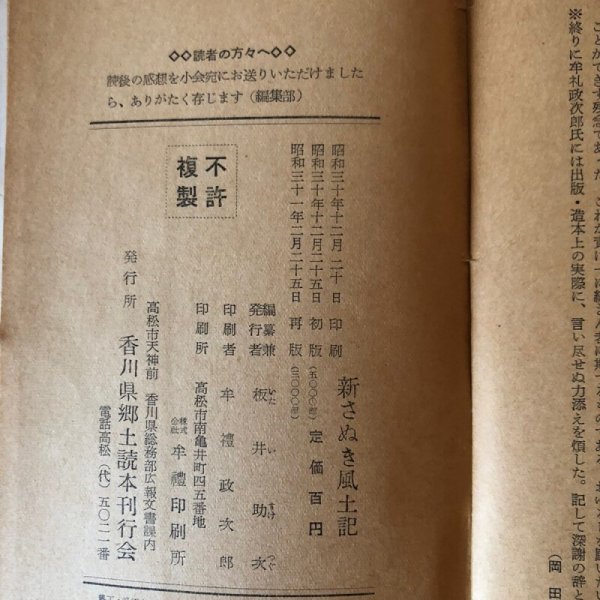 ※終りに牟礼政次郎氏には出版・造本上の実際に、言い尽せぬ力添えを煩した。記して深謝の辞と
(岡田
◇◇読者の方々へ◇◇
読後の感想を小会宛にお送りいただけました
ら、ありがたく存じます(編集部)
不許
複製
新さぬき風土記
昭和三十年十二月二十日 印刷
昭和三十年十二月二十五日 初版(五〇〇〇部) 定価百円
昭和三十一年二月二十五日 再版(三〇〇〇部)
編纂兼
発行者 板井助次
印刷者 牟禮政次郎
高松市南亀井町四五番地
印刷所 株式会社 牟禮印刷所
高松市天神前 香川県総務部広報文書課内
発行所 香川県郷土読本刊行会
電話高松(代)五〇二一番